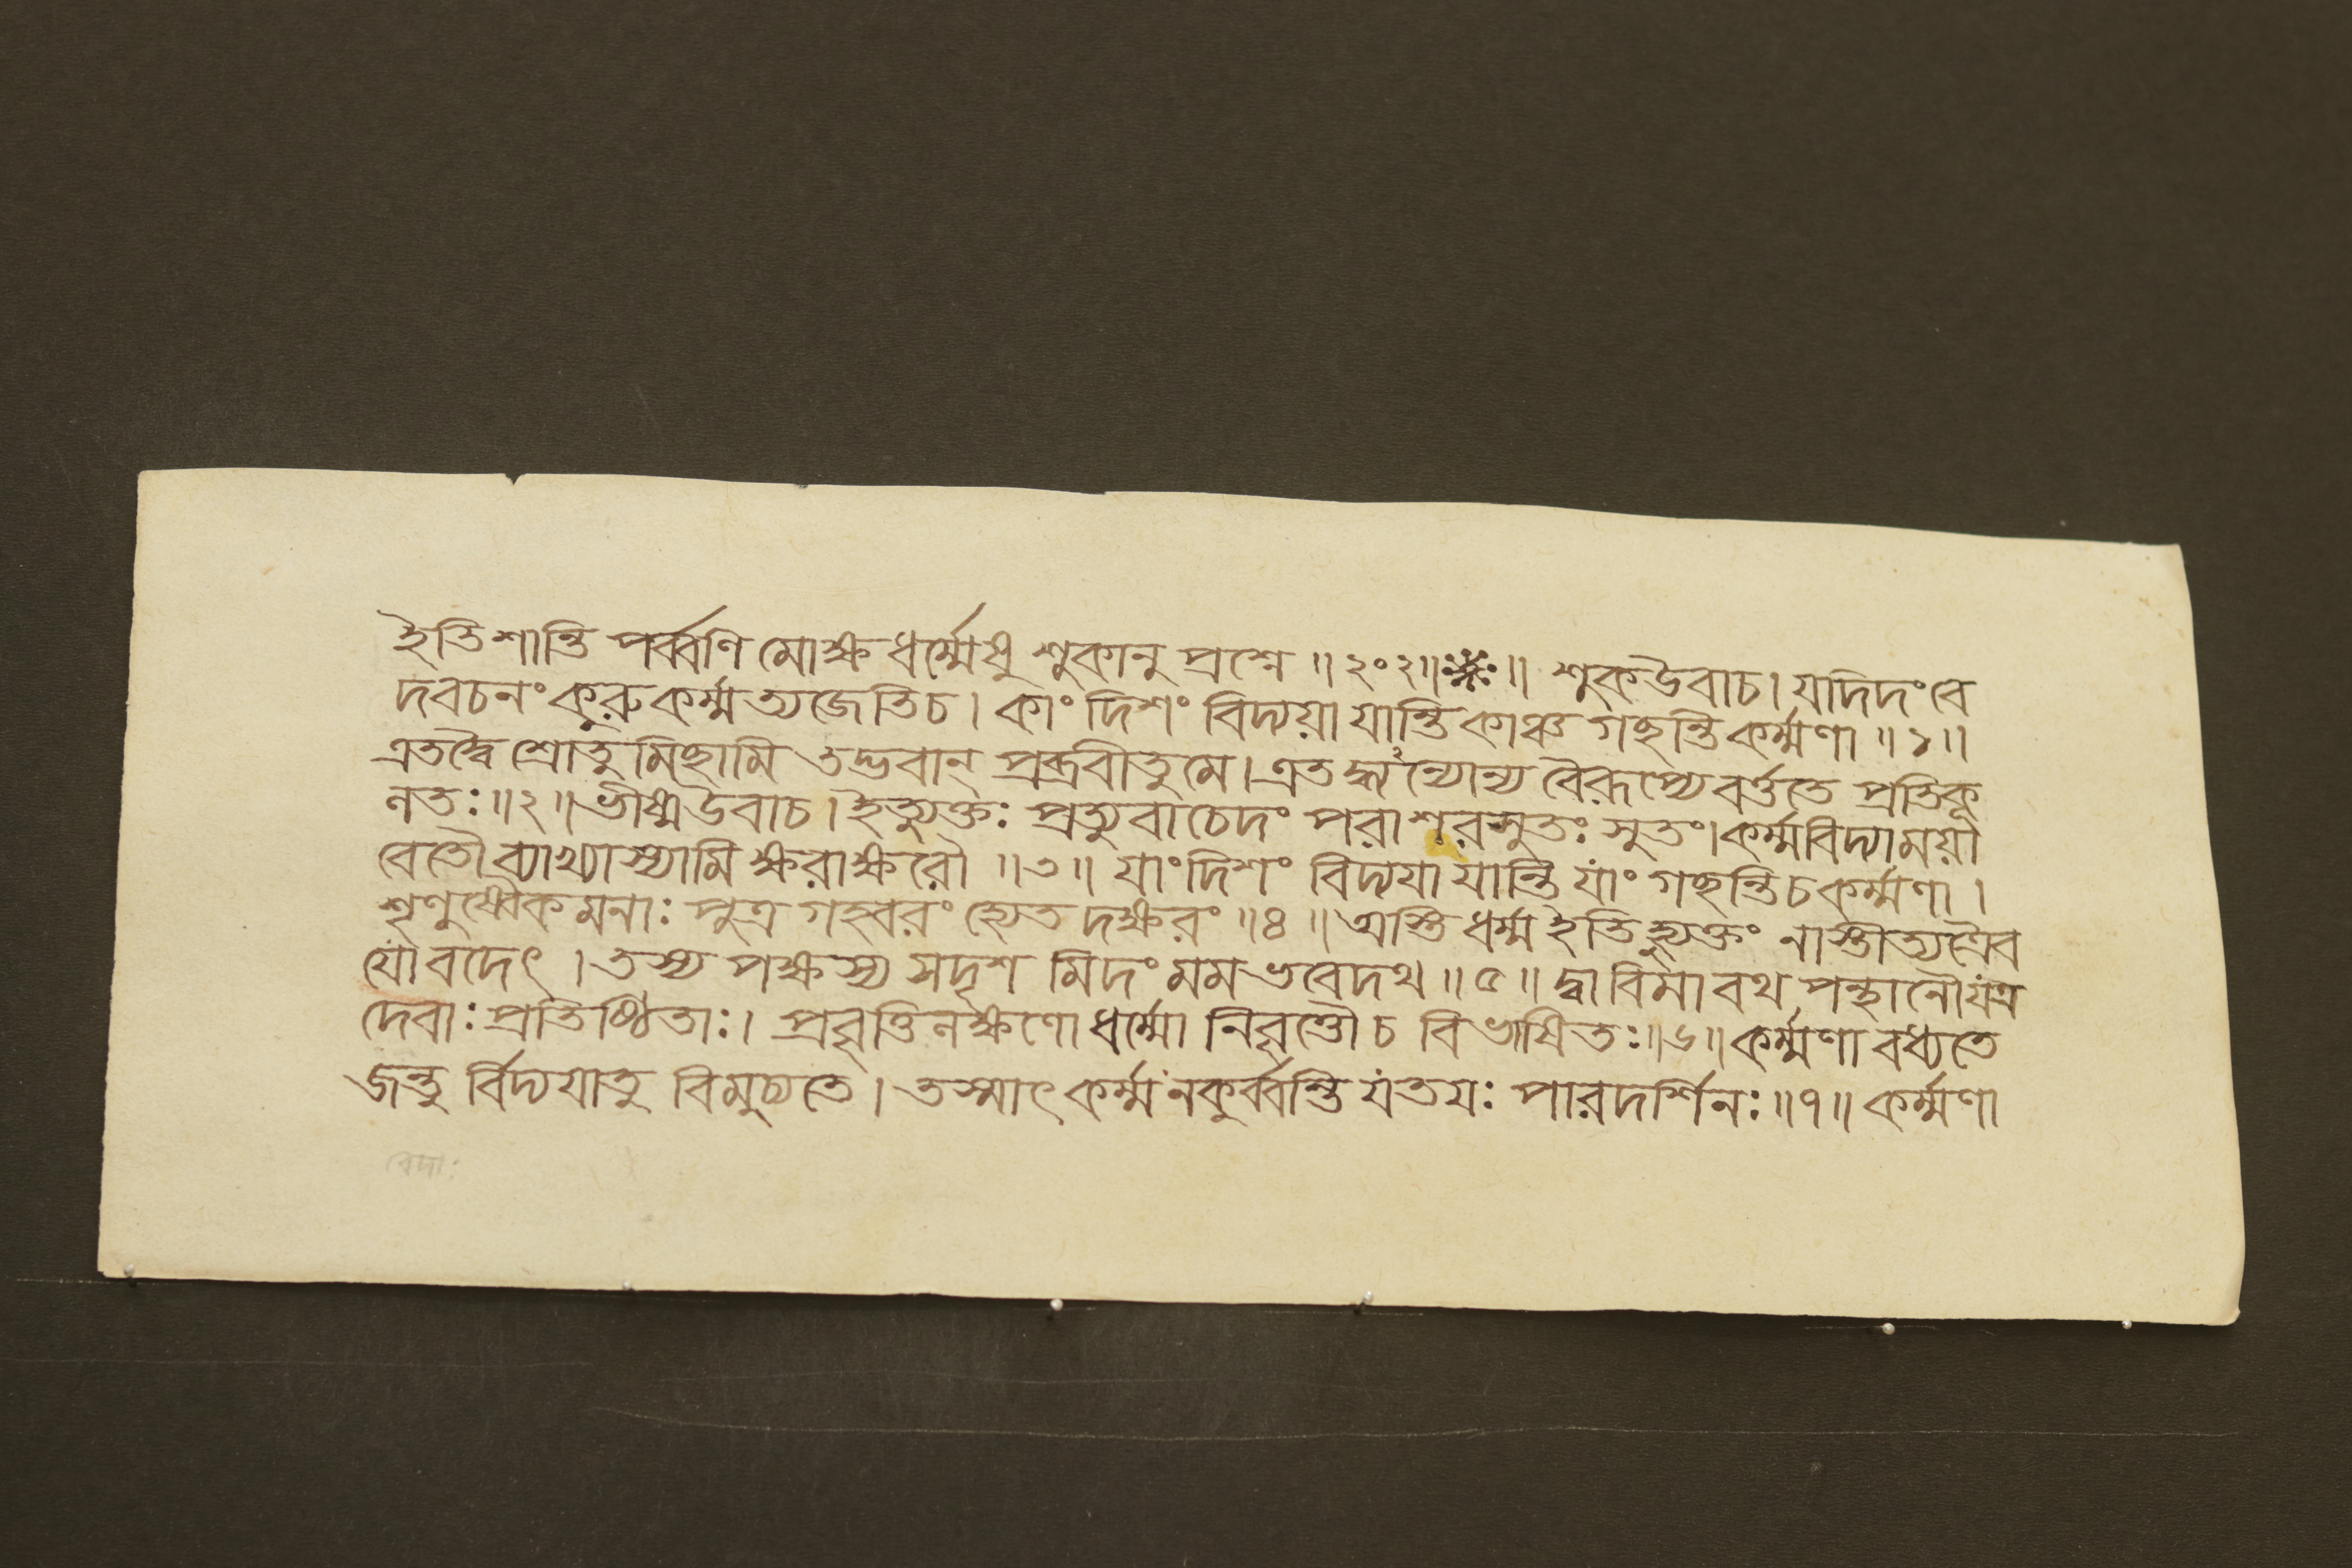 ইতি শান্তি পর্ব্বণি মোক্ষ ধর্ম্মেষু শুকানু প্রশ্নে ॥ ২০২॥ঃ※ঃ॥ শুকউবাচ। যদিদং বে
দবচনং কুরুকর্ম্মত্যজেতিচ। কাং দিশং বিদ্যয়া যান্তি কাঞ্চ গচ্ছন্তি কর্ম্মণা ॥১॥
এতদ্বৈ শ্রোতুমিচ্ছামি তদ্ভবান্ প্রব্রবীতু মে। এতদ্ধ্যন্যোন্য বৈরূপ্যে বর্ত্ততে প্রতিকূ
লতঃ॥২॥ ভীষ্ম উবাচ। ইত্যুক্তঃ প্রত্যুবাচেদং পরাশরসুতঃ সুতং। কর্ম্মবিদ্যাময়া
বেতৌ ব্যাখ্যাস্যামি ক্ষরাক্ষরৌ ॥৩॥ যাং দিশং বিদ্যয়া যান্তি যাং গচ্ছন্তি চ কর্ম্মণা।
শৃণুষ্বৈকমনাঃ পুত্র গহ্বরং হ্যেতদক্ষরং ॥৪॥ অস্তি ধর্ম্ম ইতি হ্যুক্তং নাস্তীত্যত্রৈব
যো বদেৎ। তস্য পক্ষস্য সদৃশ মিদং মম ভবেদথ ॥৫॥ দ্বাবিমাবথ পন্থানৌ যত্র
দেবাঃ প্রতিষ্ঠিতাঃ। প্রবৃত্তিলক্ষণো ধর্ম্মো নিবৃত্তৌ চ বিভাষিতঃ॥৬॥ কর্ম্মণা বধ্যতে
জন্তু র্বিদ্যয়াতু বিমুচ্যতে। তস্মাৎ কর্ম্ম ন কুর্ব্বন্তি যতয়ঃ পারদর্শিনঃ॥৭॥ কর্ম্মণা
বেদাঃ